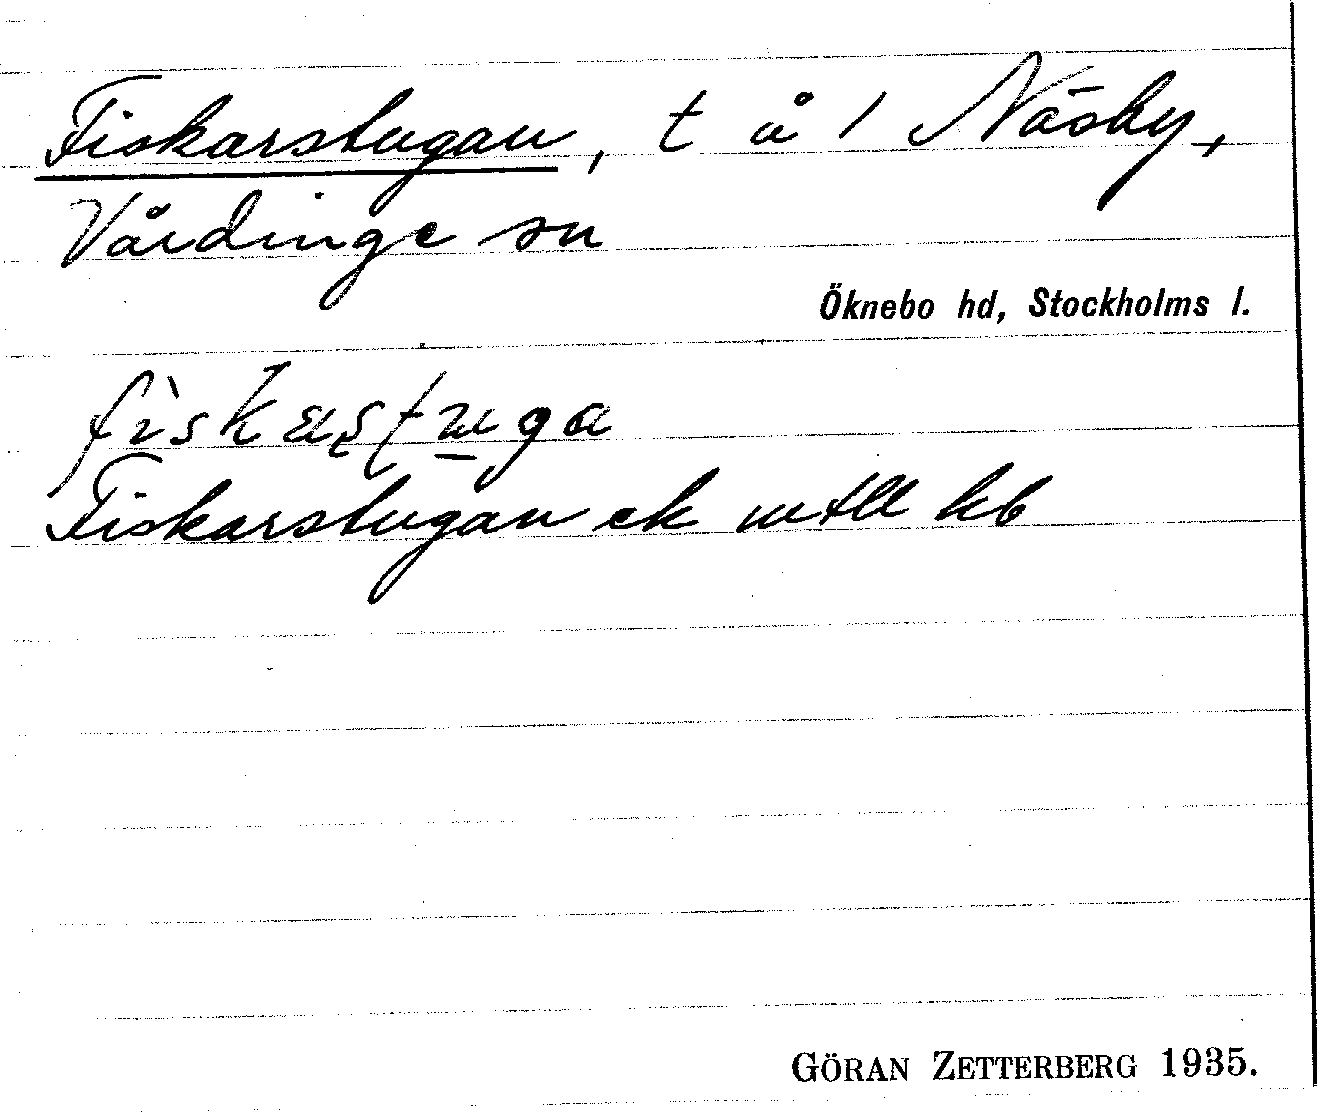 Fiskarstugan, t å 1 Näsby,
Vårdinge sn
Öknebo hd, Stockholms l.
fìskaʂʈuga
Fiskarstugan ek mtll kb
GÖRAN ZETTERBERG 1935.